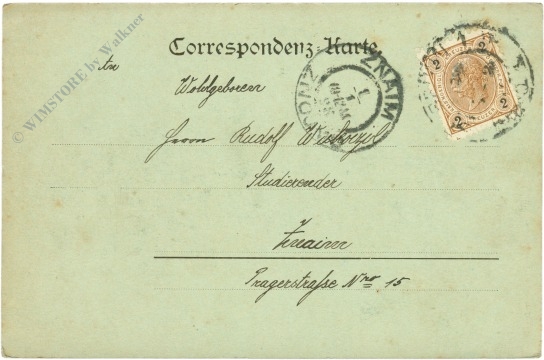 © WIMSTORE by Walkner
Correspondenz-Karte
An
Wohlgeboren
ZNAIM
ZNOJMO
Herrn Rudolf
Studierender
Znaim
Pragerstraße Nro 15
2
2
2
2